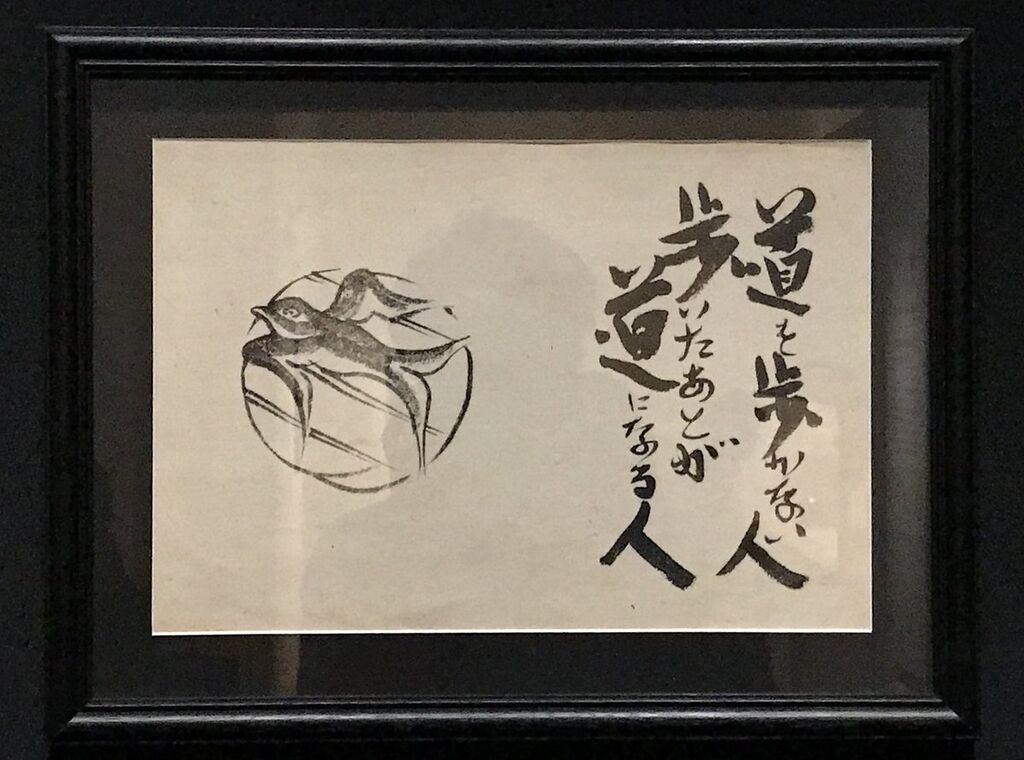 道を歩かない人
歩いたあとが
道になる人